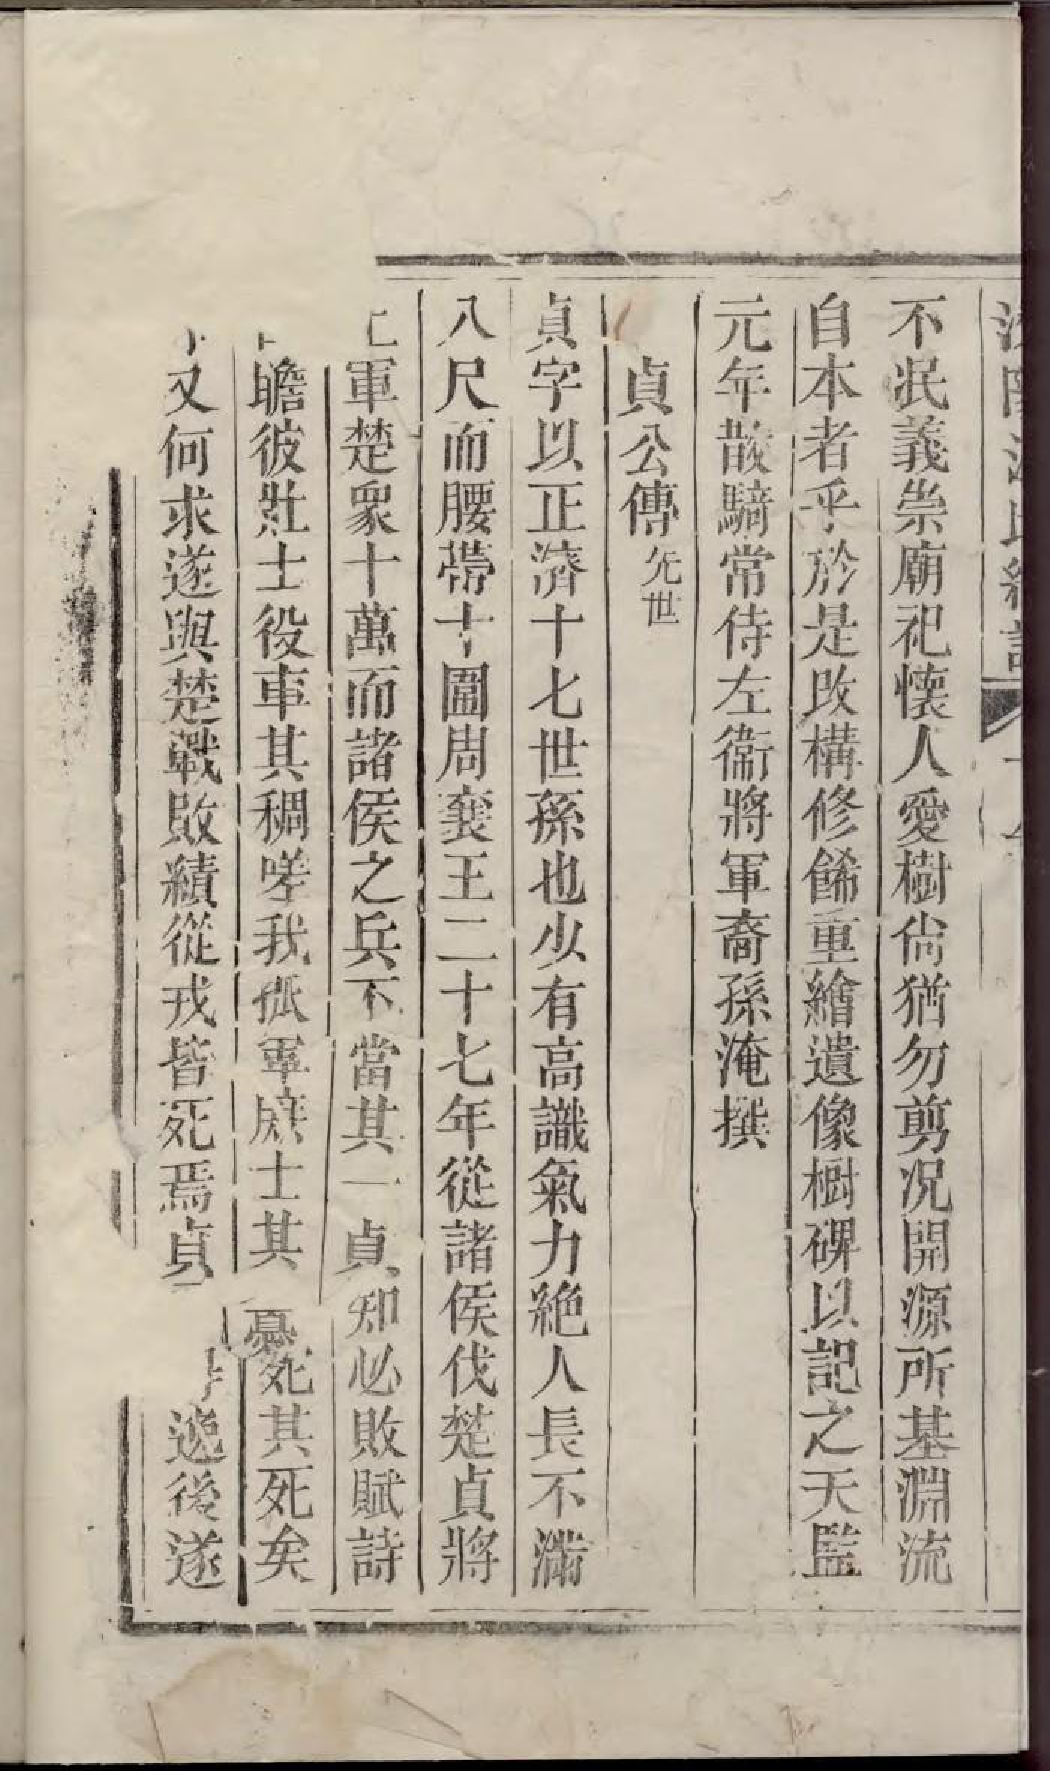 不泯義崇廟祀懷人愛樹尙猶勿剪況開源所基淵流
自本者乎於是改構修餙重繪遺像樹碑以記之天監
元年散騎常侍左衞將軍裔孫淹撰
貞公傳 先世
貞字以正濟十七世孫也少有高識氣力絶人長不滿
八尺而腰帶十圍周襄王二十七年從諸侯伐楚貞將
軍楚衆十萬而諸侯之兵不當其一貞知必敗賦詩
瞻彼壯士役車其稠嗟我孤軍士其憂死其死矣
又何求遂與楚戰敗績從戎皆死焉貞逸後遂